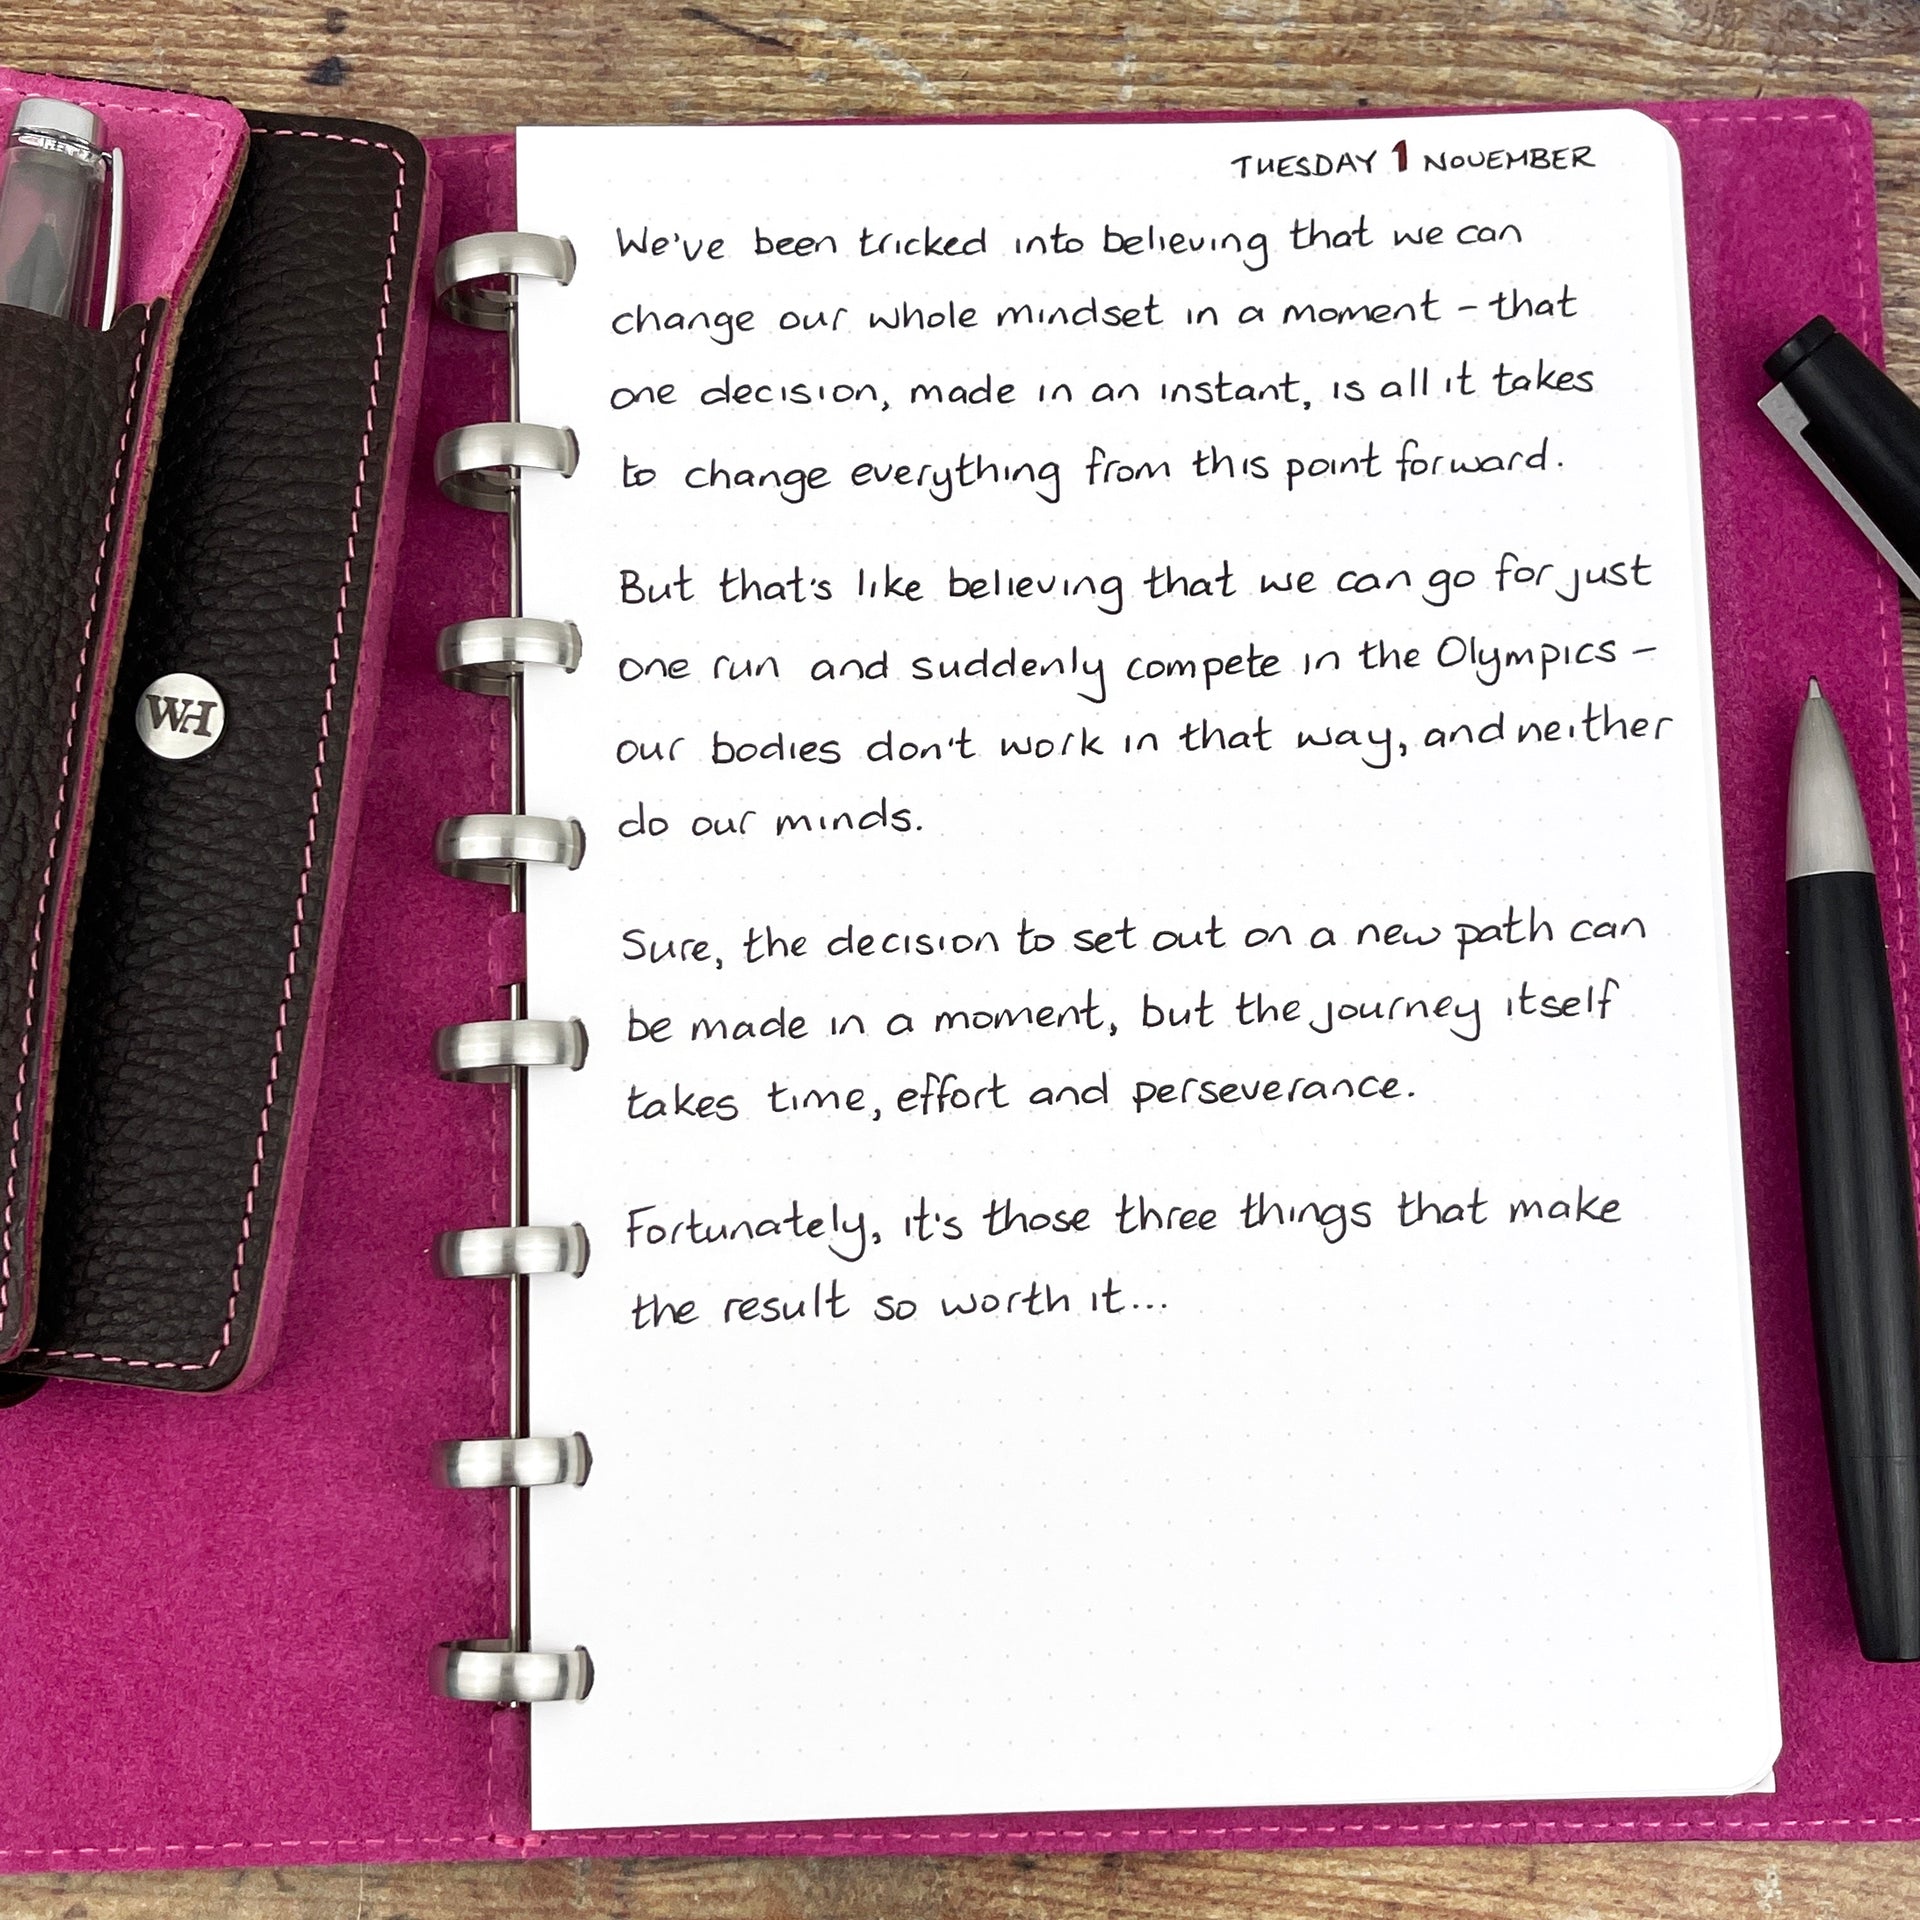 TUESDAY 1 NOVEMBER
We've been tricked into believing that we can
change our whole mindset in a moment – that
one decision, made in an instant, is all it takes
to change everything from this point forward.
But that's like believing that we can go for just
one run and suddenly compete in the Olympics –
our bodies don't work in that way, and neither
do our minds.
Sure, the decision to set out on a new path can
be made in a moment, but the journey itself
takes time, effort and perseverance.
Fortunately, it's those three things that make
the result so worth it...
WH